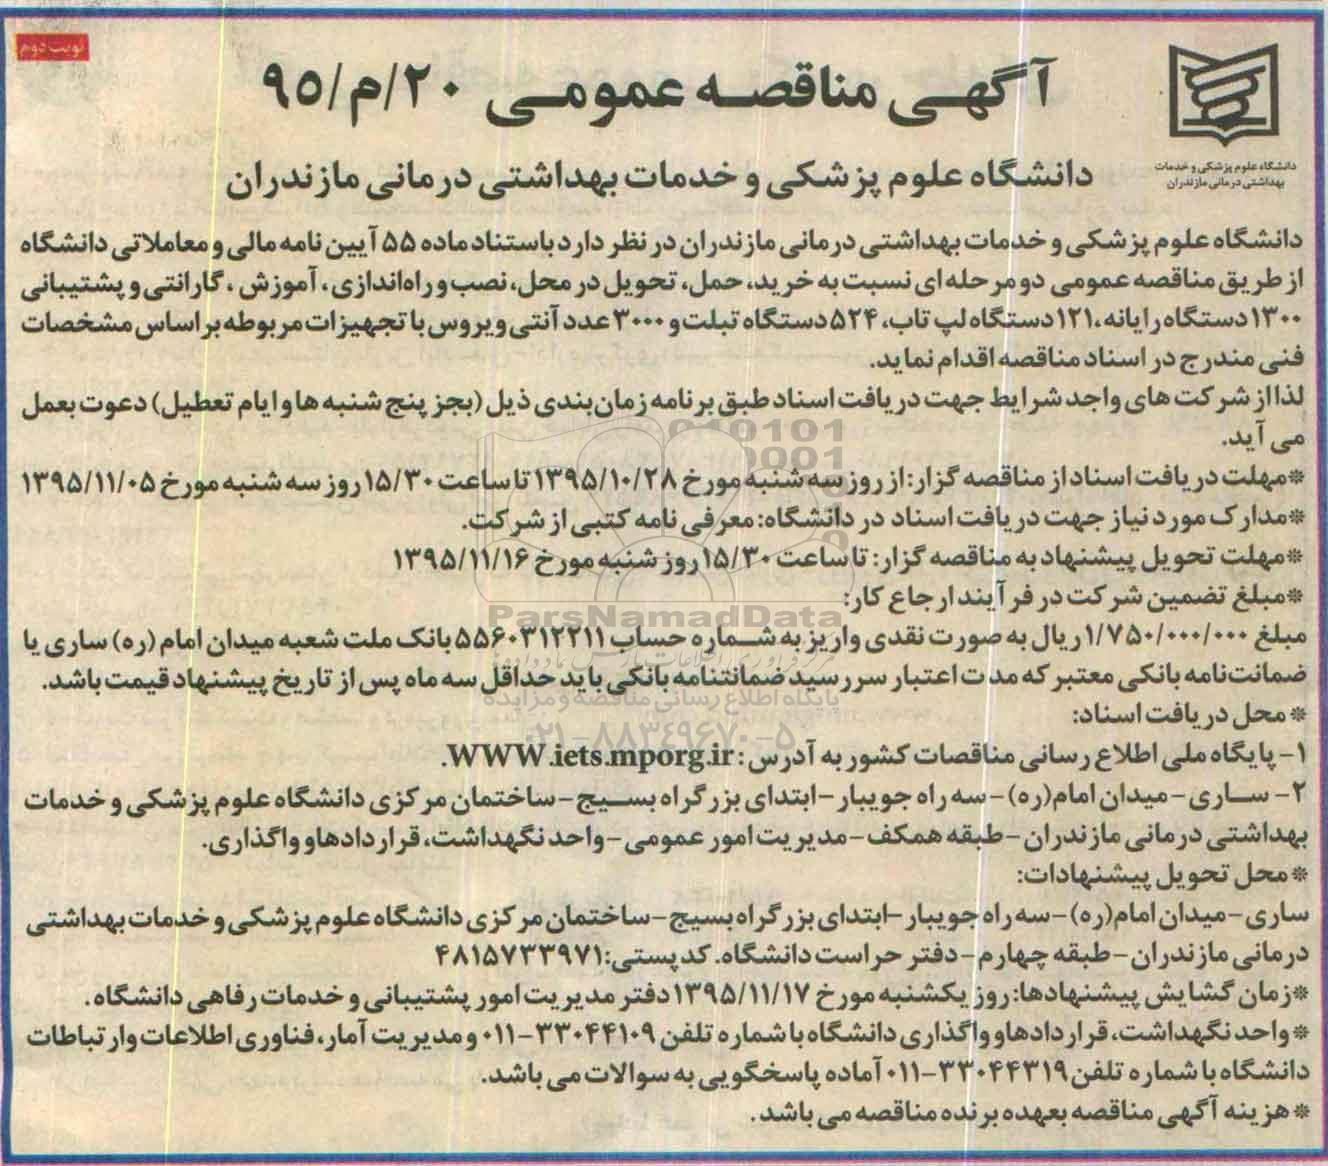 نوبت دوم
آگهی مناقصه عمومی ۲۰/م/۹۵
دانشگاه علوم پزشکی و خدمات
بهداشتی درمانی مازندران
دانشگاه علوم پزشکی و خدمات بهداشتی درمانی مازندران
دانشگاه علوم پزشکی و خدمات بهداشتی درمانی مازندران در نظر دارد باستناد ماده ۵۵ آیین نامه مالی و معاملاتی دانشگاه
از طریق مناقصه عمومی دو مرحله ای نسبت به خرید، حمل، تحویل در محل، نصب و راه‌اندازی، آموزش، گارانتی و پشتیبانی
۱۳۰۰ دستگاه رایانه، ۱۲۱ دستگاه لپ تاب، ۵۲۴ دستگاه تبلت و ۳۰۰۰ عدد آنتی ویروس با تجهیزات مربوطه بر اساس مشخصات
فنی مندرج در اسناد مناقصه اقدام نماید.
لذا از شرکت های واجد شرایط جهت دریافت اسناد طبق برنامه زمان‌بندی ذیل (بجز پنج شنبه ها و ایام تعطیل) دعوت بعمل
می آید.
*مهلت دریافت اسناد از مناقصه گزار: از روز سه شنبه مورخ ۱۳۹۵/۱۰/۲۸ تا ساعت ۱۵/۳۰ روز سه شنبه مورخ ۱۳۹۵/۱۱/۰۵
*مدارک مورد نیاز جهت دریافت اسناد در دانشگاه: معرفی نامه کتبی از شرکت.
*مهلت تحویل پیشنهاد به مناقصه گزار: تا ساعت ۱۵/۳۰ روز شنبه مورخ ۱۳۹۵/۱۱/۱۶
*مبلغ تضمین شرکت در فرآیند ارجاع کار:
مبلغ ۱/۷۵۰/۰۰۰/۰۰۰ ریال به صورت نقدی واریز به شماره حساب ۵۵۶۰۳۱۲۲۱۱ بانک ملت شعبه میدان امام (ره) ساری یا
ضمانت‌نامه بانکی معتبر که مدت اعتبار سررسید ضمانتنامه بانکی باید حداقل سه ماه پس از تاریخ پیشنهاد قیمت باشد.
* محل دریافت اسناد:
۱- پایگاه ملی اطلاع رسانی مناقصات کشور به آدرس: WWW.iets.mporg.ir.
۲- ساری -میدان امام(ره) -سه راه جویبار -ابتدای بزرگراه بسیج -ساختمان مرکزی دانشگاه علوم پزشکی و خدمات
بهداشتی درمانی مازندران -طبقه همکف -مدیریت امور عمومی -واحد نگهداشت، قراردادها و واگذاری.
* محل تحویل پیشنهادات:
ساری -میدان امام(ره) -سه راه جویبار -ابتدای بزرگراه بسیج -ساختمان مرکزی دانشگاه علوم پزشکی و خدمات بهداشتی
درمانی مازندران -طبقه چهارم -دفتر حراست دانشگاه. کد پستی: ۴۸۱۵۷۳۳۹۷۱
*زمان گشایش پیشنهادها: روز یکشنبه مورخ ۱۳۹۵/۱۱/۱۷ دفتر مدیریت امور پشتیبانی و خدمات رفاهی دانشگاه.
*واحد نگهداشت، قراردادها و واگذاری دانشگاه با شماره تلفن ۳۳۰۴۴۱۰۹-۰۱۱ و مدیریت آمار، فناوری اطلاعات و ارتباطات
دانشگاه با شماره تلفن ۳۳۰۴۴۳۱۹-۰۱۱ آماده پاسخگویی به سوالات می باشد.
* هزینه آگهی مناقصه بعهده برنده مناقصه می باشد.
ParsNamadData
پایگاه اطلاع رسانی مناقصه و مزایده
۰۲۱-۸۸۳۴۹۶۷۰-۵